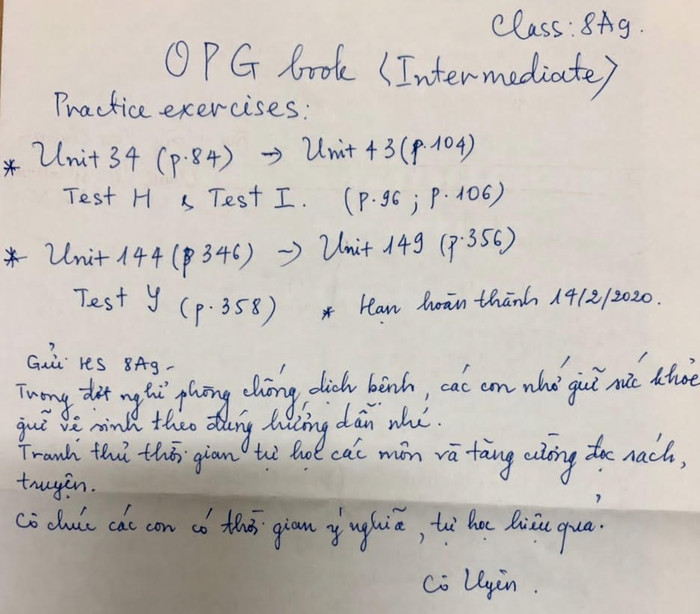 Class: 8A9.
OPG book (Intermediate)
Practice exercises:
* Unit 34 (p.84) → Unit 43 (p.104)
Test H & Test I. (p.96 ; p.106)
* Unit 144 (p 346) → Unit 149 (p.356)
Test Y (p.358) * Hạn hoàn thành 14/2/2020.
Gửi HS 8A9 -
Trong đợt nghỉ phòng chống dịch bệnh, các con nhớ giữ sức khỏe
giữ vệ sinh theo đúng hướng dẫn nhé.
Tranh thủ thời gian tự học các môn và tăng cường đọc sách,
truyện.
Cô chúc các con có thời gian ý nghĩa, tự học hiệu quả.
Cô Uyên.